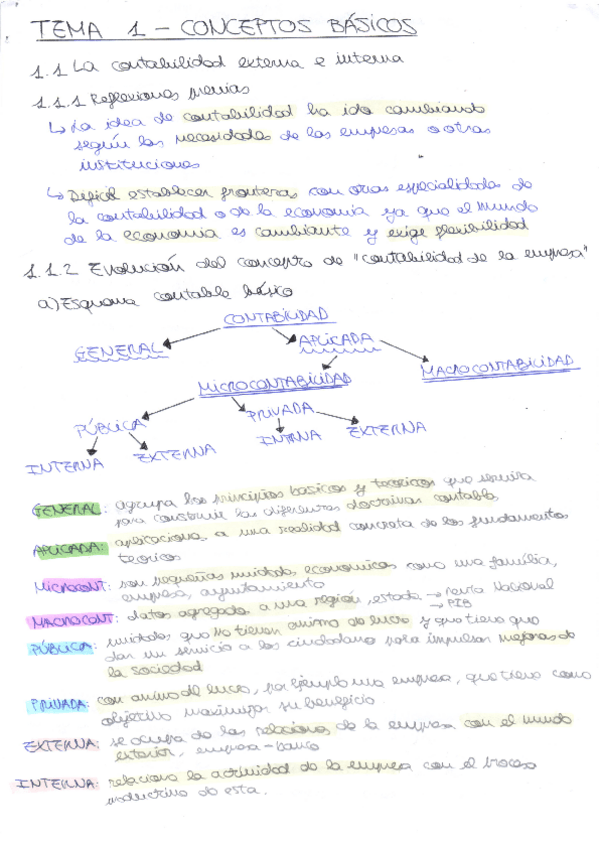 TEMA 1 - CONCEPTOS BÁSICOS
1.1 La contabilidad externa e interna
1.1.1 Reflexiones previas
↳ La idea de contabilidad ha ido cambiando
según las necesidades de las empresas o otras
instituciones
↳ Dificil establecer fronteras con otras especialidades de
la contabilidad o de la economia ya que el mundo
de la economia es cambiante y exige flexibilidad
1.1.2 Evolución del concepto de "contabilidad de la empresa"
a) Esquema contable básico
CONTABILIDAD
GENERAL APLICADA
MICROCONTABILIDAD MACROCONTABILIDAD
PÚBLICA PRIVADA
INTERNA EXTERNA INTERNA EXTERNA
GENERAL: agrupa los principios basicos y teoricos que
para construir las diferentes doctrinas contables
APLICADA: aplicaciones a una realidad concreta de los fundamentos
teoricos
MICROCONT: son pequeñas unidades economicas como una familia,
empresa, ayuntamiento
MACROCONT: datos agregados a una región, estado → renta Nacional
→ PIB
PÚBLICA: unidades que no tienen animo de lucro y que tiene que
dar un servicio a los ciudadanos para impulsar mejoras de
la sociedad
PRIVADA: con animo de lucro, por ejemplo una empresa, que tiene como
objetivo maximizar su beneficio
EXTERNA: se ocupa de las relaciones de la empresa con el mundo
exterior, empresa-banco
INTERNA: relaciona la actividad de la empresa con el proceso
productivo de esta.